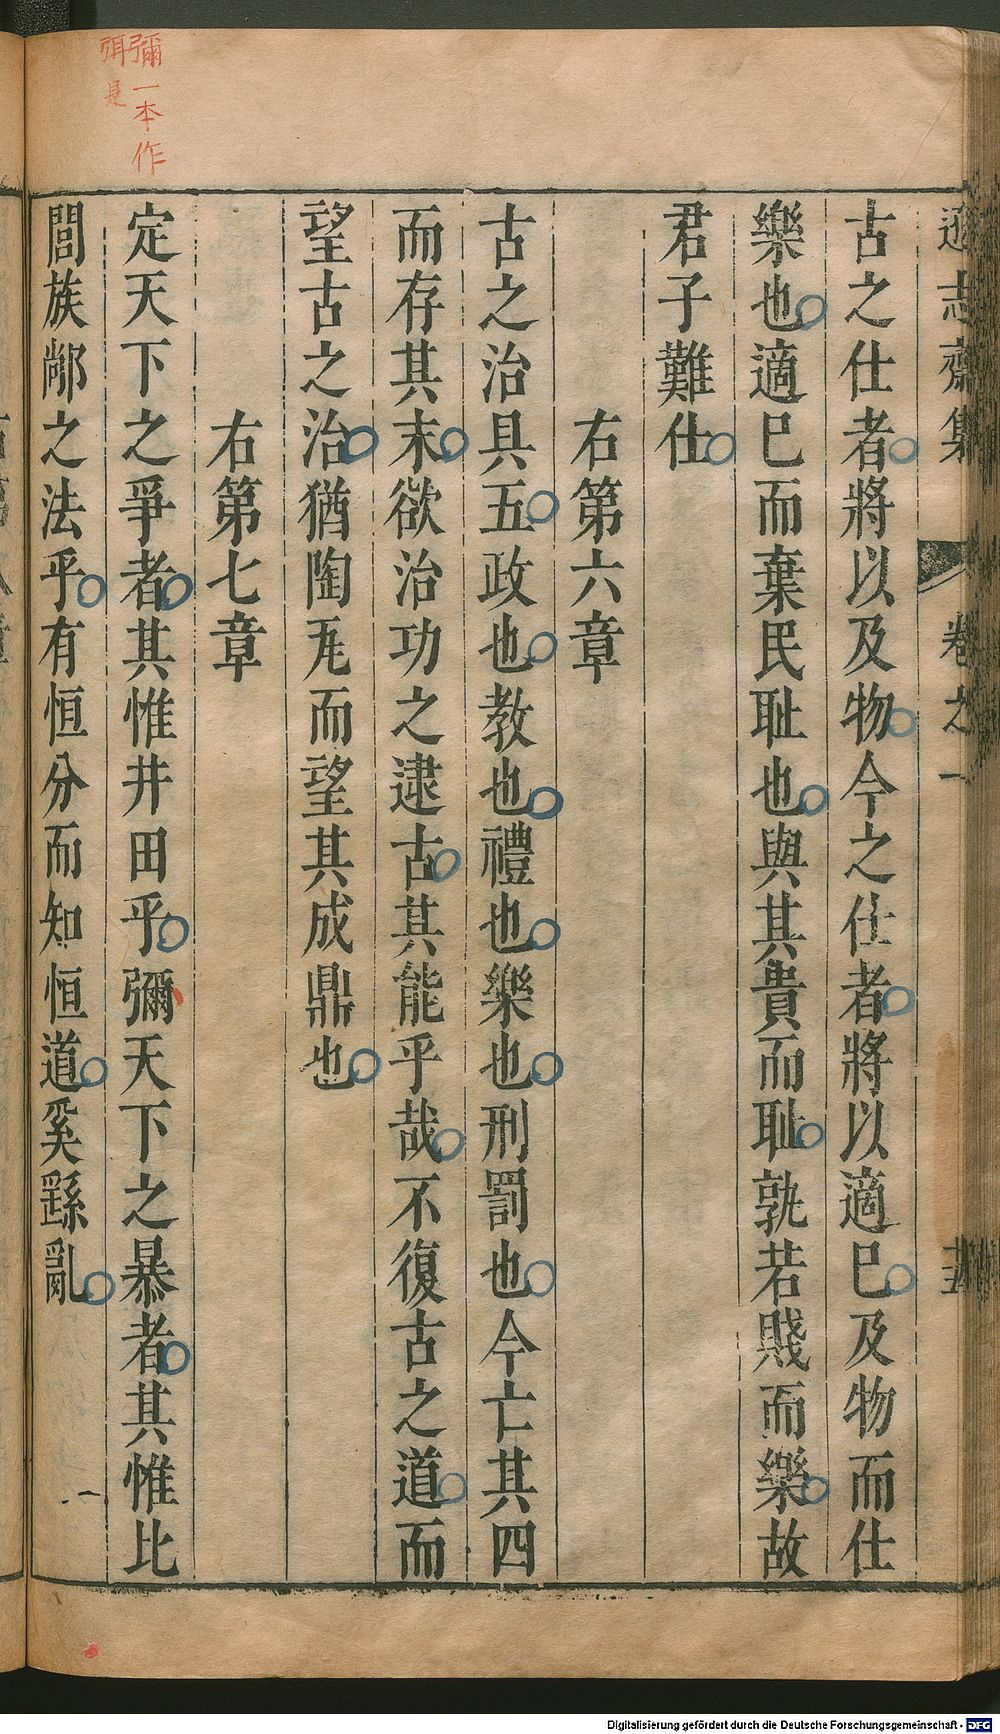 彌一本作
弭是
遜志齋集 卷之一 十五
古之仕者將以及物今之仕者將以適巳及物而仕
樂也適巳而棄民耻也與其貴而耻孰若賤而樂故
君子難仕
右第六章
古之治具五政也教也禮也樂也刑罰也今亡其四
而存其末欲治功之逮古其能乎哉不復古之道而
望古之治猶陶瓦而望其成鼎也
右第七章
定天下之爭者其惟井田乎彌天下之暴者其惟比
閭族鄰之法乎有恒分而知恒道奚繇亂
Digitalisierung gefördert durch die Deutsche Forschungsgemeinschaft - DFG